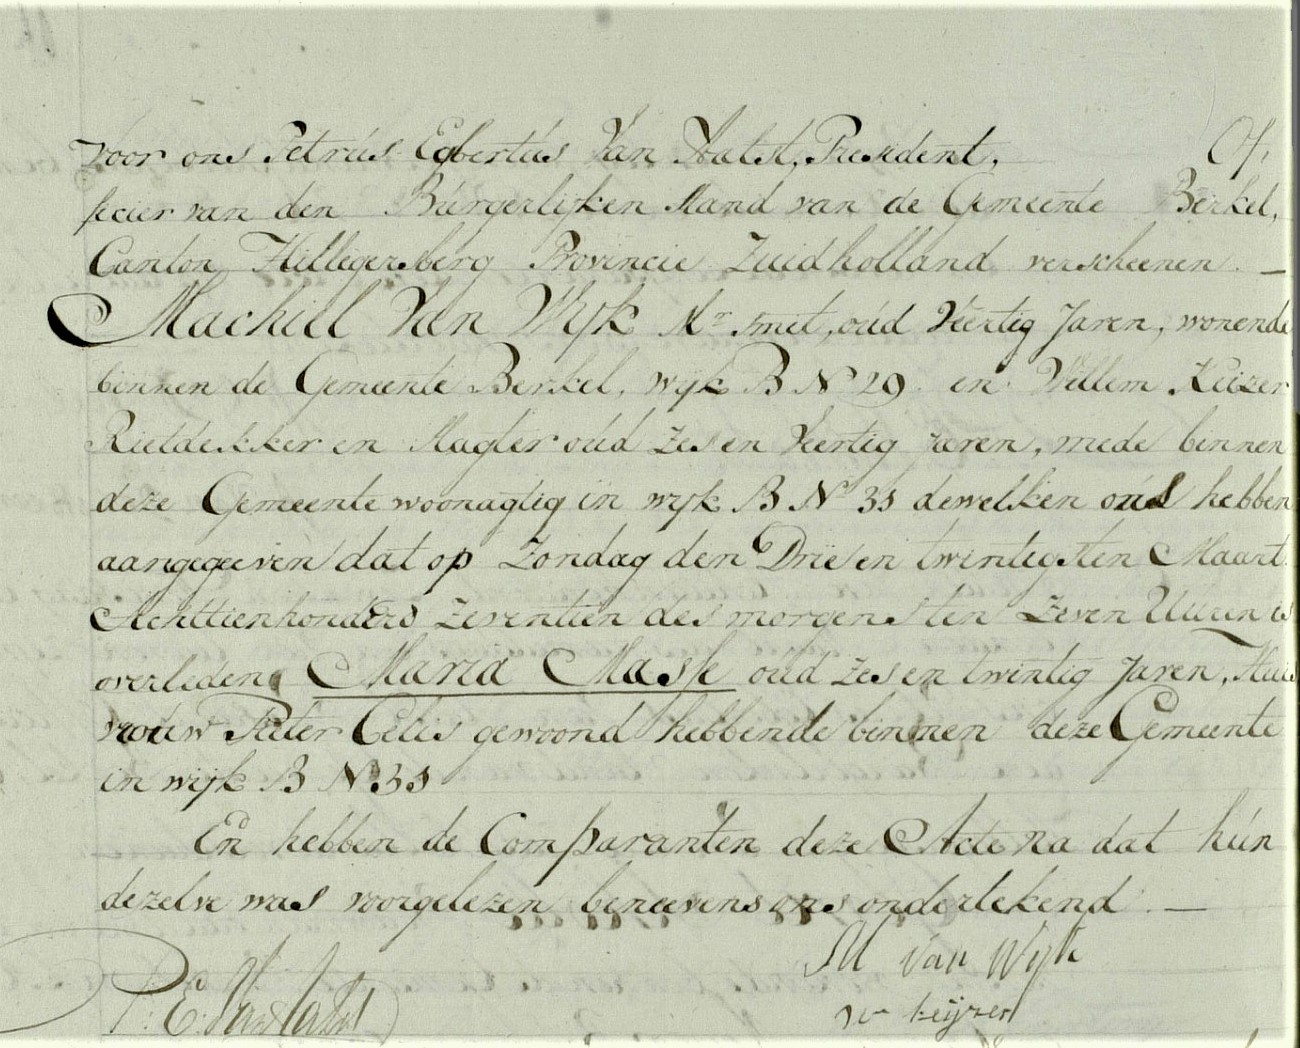 Voor ons Petrus Egbertus Van Aalst, President, Of,
ficier van den Burgerlijken Stand van de Gemeente Berkel,
Canton Hillegersberg Provincie Zuidholland verscheenen. —
Machiel Van Wijk Mr smit, oud Veertig Jaren, wonende
binnen de Gemeente Berkel, wijk B No 29. en Willem Keizer
Rietdekker en Slagter oud zes en Veertig jaren, mede binnen
deze Gemeente woonagtig in wijk B No 35 dewelken ons hebben
aangegeeven dat op Zondag den Drie en twintigsten Maart
Achttienhonderd Zeventien des morgens ten Zeven Uuren is
overleden Maria Masse oud zes en twintig Jaren, Huis
vrouw Pieter Celis gewoond hebbende binnen deze Gemeente
in wijk B No 35
En hebben de Comparanten deze Acte na dat hun
dezelve was voorgelezen beneevens ons ondertekend. —
P: E: Van Aalst
M van Wijk
W keijzer